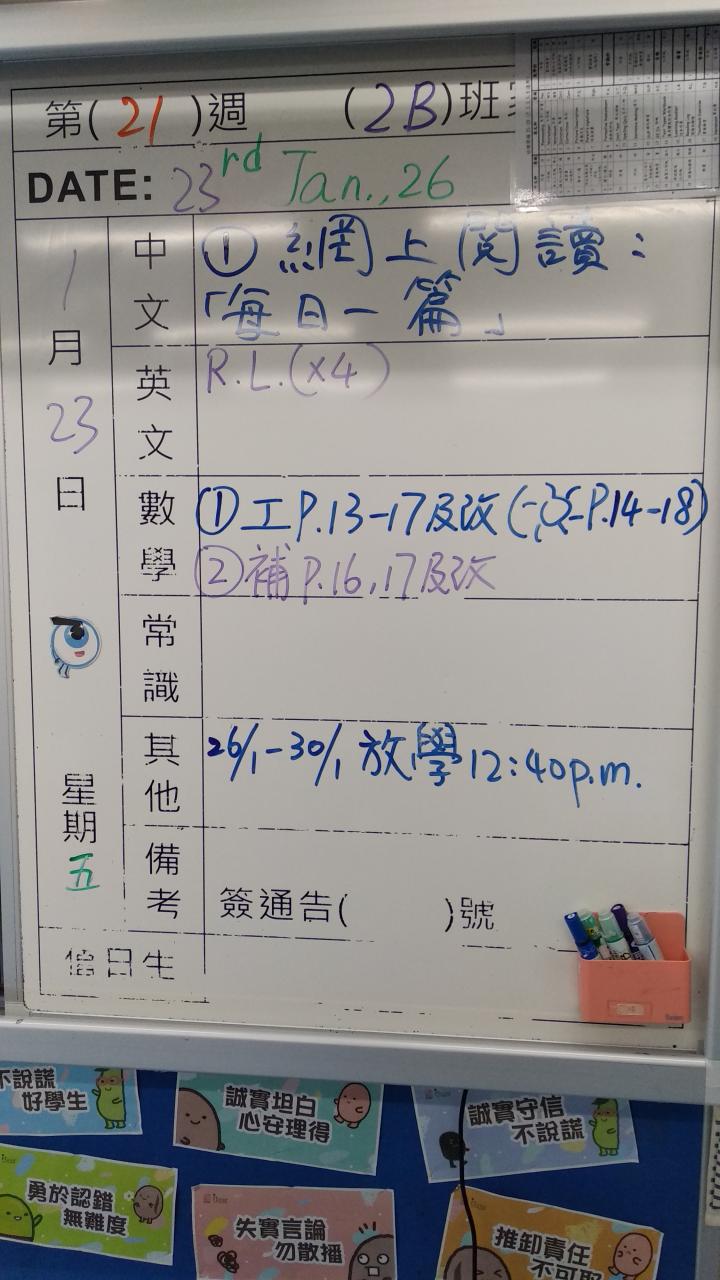 第(21)週 (2B)班
DATE: 23rd Jan., 26
1月23日 星期五
中文
①網上閱讀：
「每日一篇」
英文
R.L.(×4)
數學
①工P.13-17及改
P.14-18)
②補P.16,17及改
常識
其他
26/1-30/1 放學12:40p.m.
備考
簽通告( )號
值日生
不說謊
好學生
誠實坦白
心安理得
誠實守信
不說謊
勇於認錯
無難度
失實言論
勿散播
推卸責任